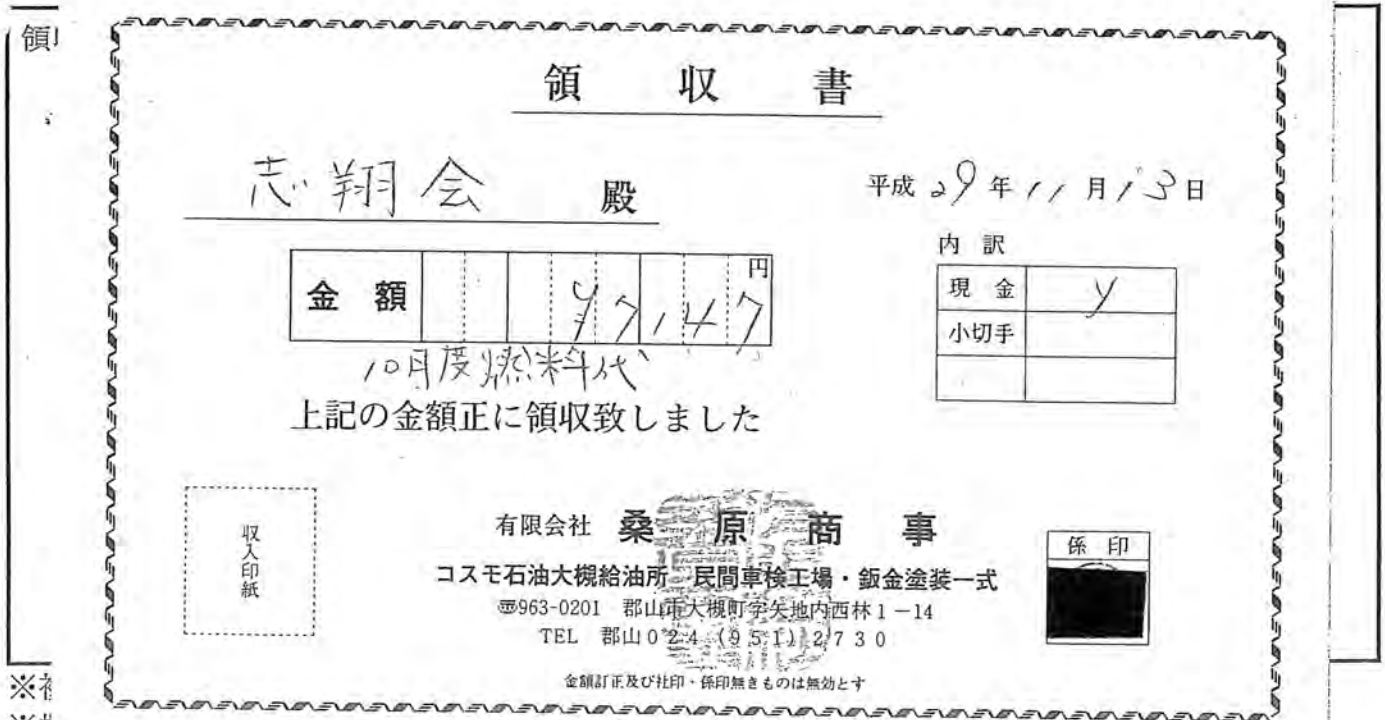 領
領収書
志翔会 殿
平成29年11月13日
金額 ¥7147円
10月度燃料代
上記の金額正に領収致しました
内訳
現金 ¥
小切手
収入印紙
有限会社 桑原商事
コスモ石油大槻給油所 民間車検工場・鈑金塗装一式
〠963-0201 郡山市大槻町字矢地内西林1-14
TEL 郡山024(951)2730
係印
金額訂正及び社印・係印無きものは無効とす
※